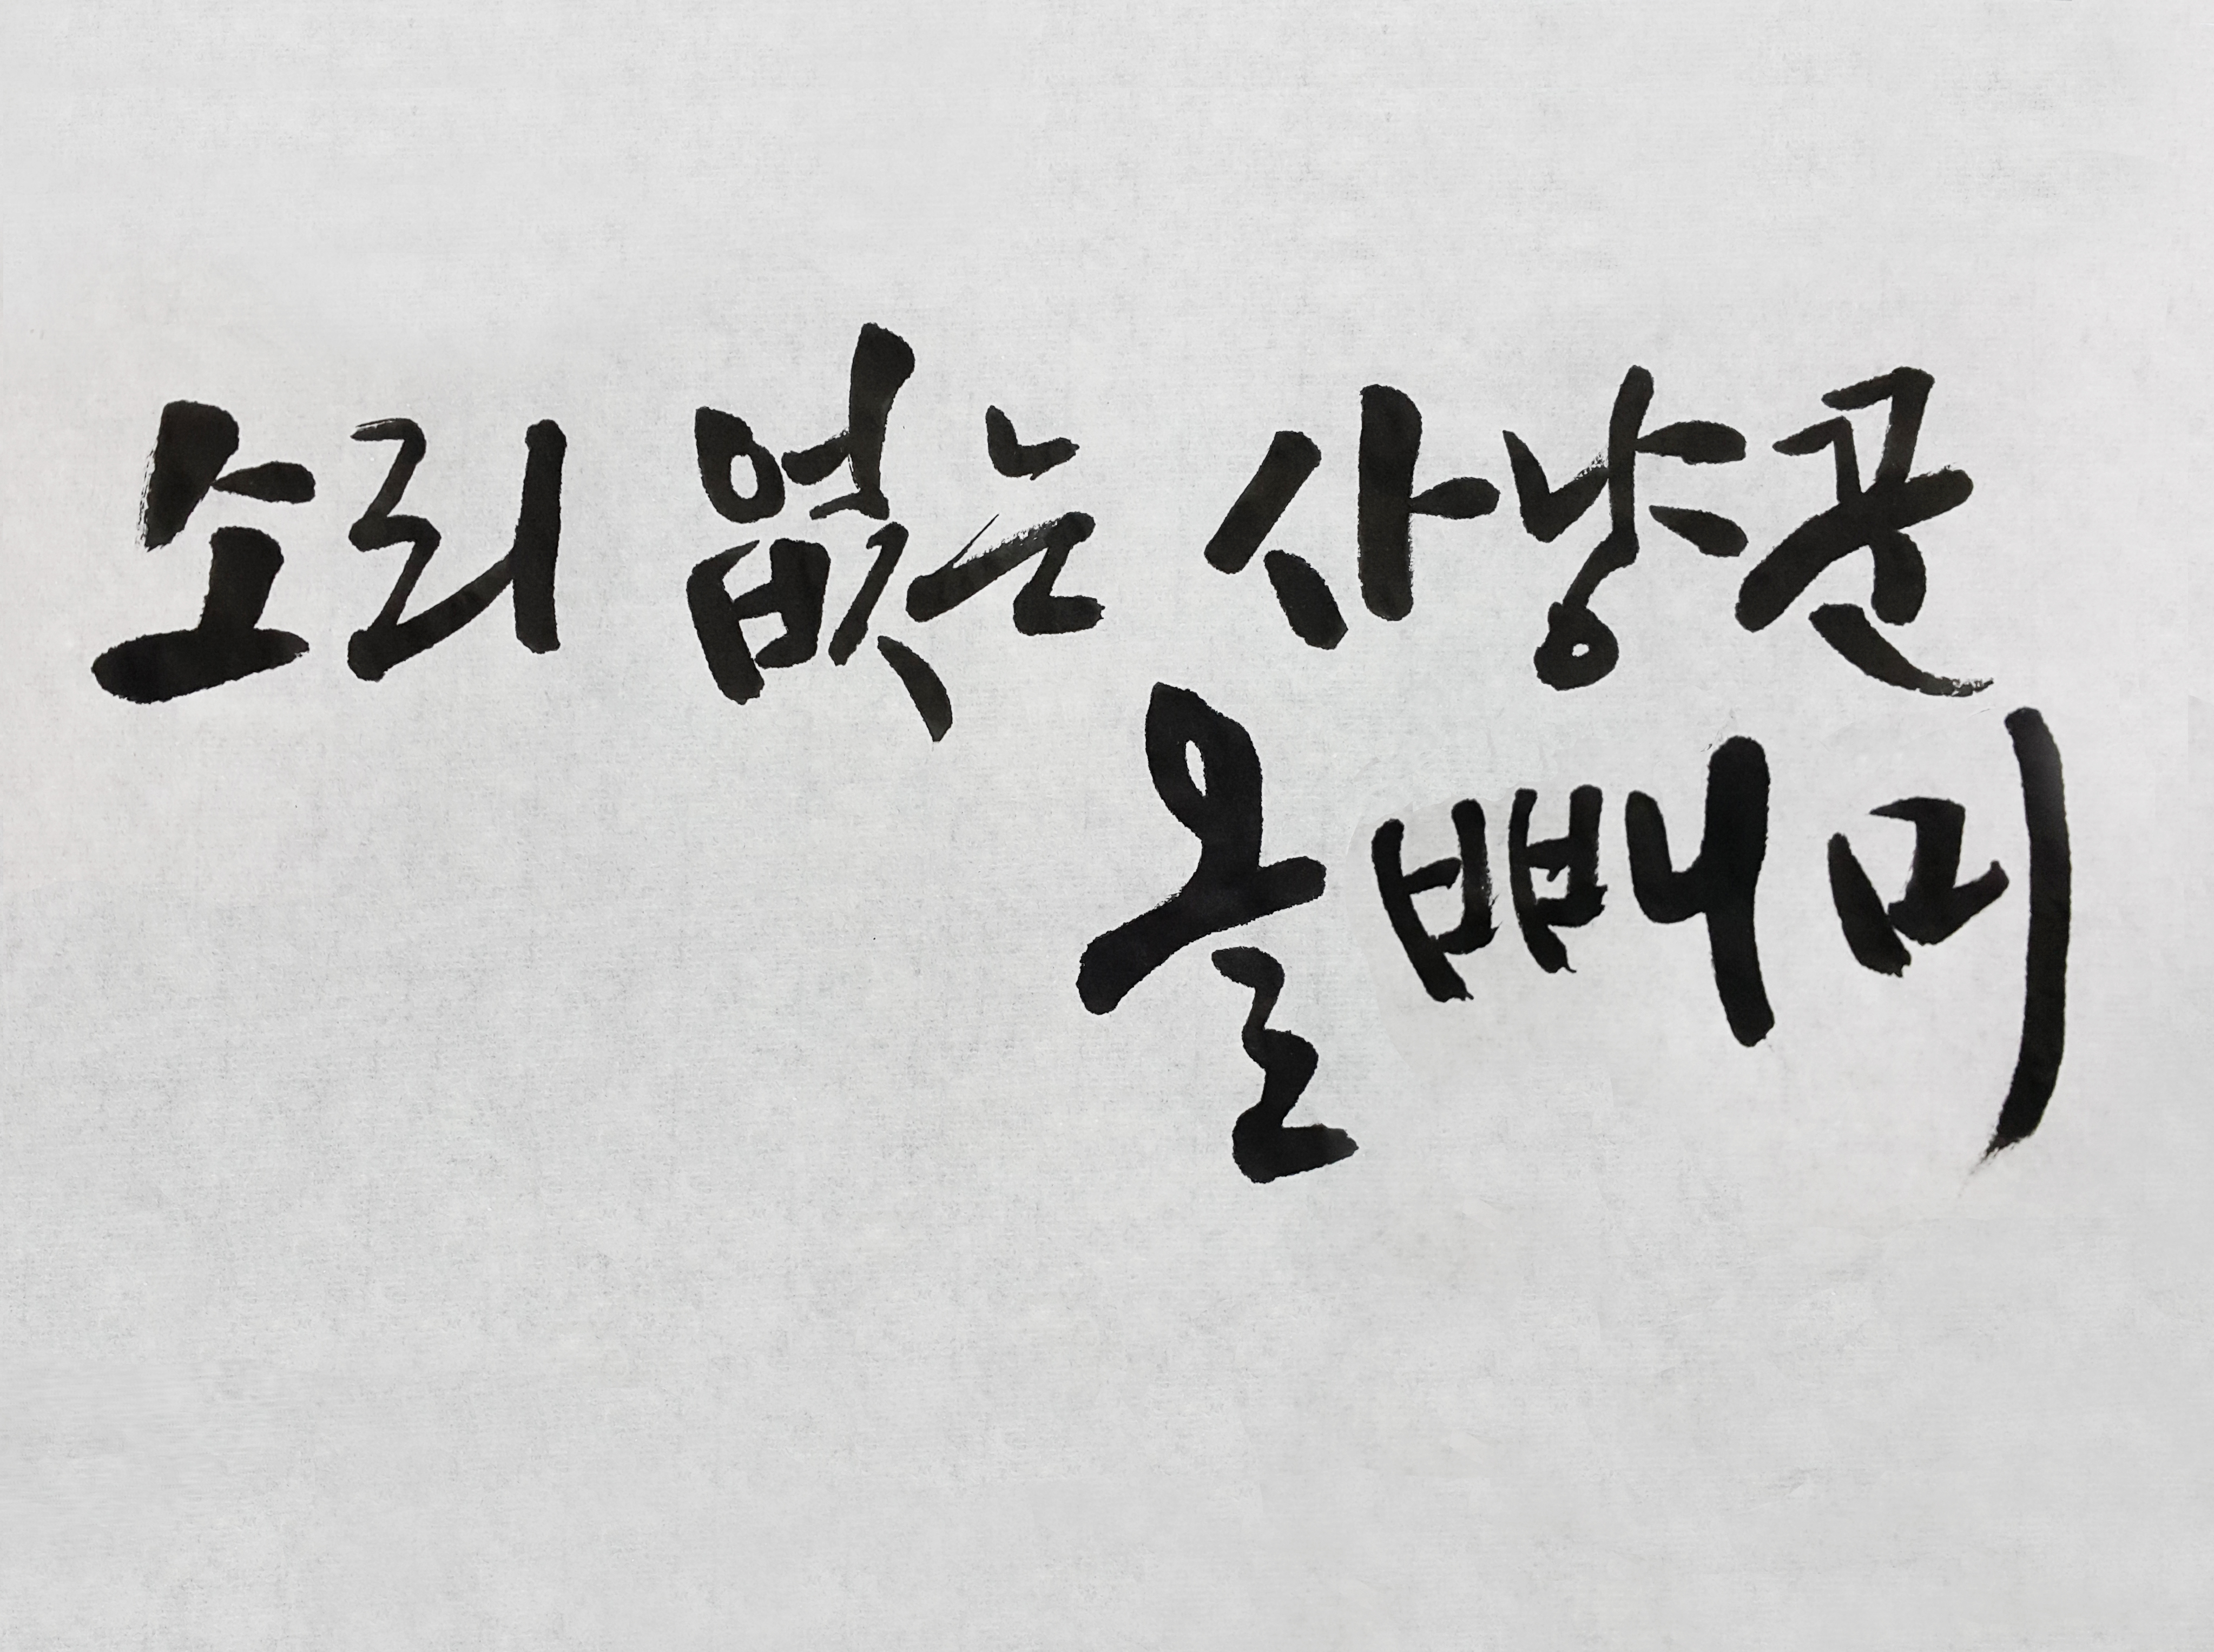 소리 없는 사냥꾼
올빼미